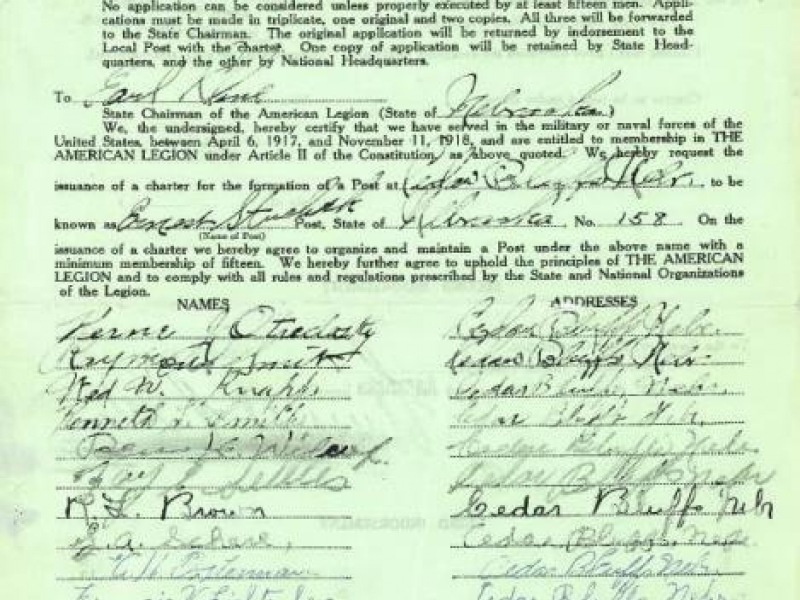 No application can be considered unless properly executed by at least fifteen men. Appli-
cations must be made in triplicate, one original and two copies. All three will be forwarded
to the State Chairman. The original application will be returned by indorsement to the
Local Post with the charter. One copy of application will be retained by State Head-
quarters, and the other by National Headquarters.
To Earl
State Chairman of the American Legion (State of Nebraska)
We, the undersigned, hereby certify that we have served in the military or naval forces of the
United States, between April 6, 1917, and November 11, 1918, and are entitled to membership in THE
AMERICAN LEGION under Article II of the Constitution as above quoted. We hereby request the
issuance of a charter for the formation of a Post at Cedar Bluffs Nebr. to be
known as Ernest Post, State of Nebraska, No. 158 On the
(Name of Post)
issuance of a charter we hereby agree to organize and maintain a Post under the above name with a
minimum membership of fifteen. We hereby further agree to uphold the principles of THE AMERICAN
LEGION and to comply with all rules and regulations prescribed by the State and National Organizations
of the Legion.
NAMES ADDRESSES
Verne J Cedar Bluffs Nebr.
Raymond Smith Cedar Bluffs Nebr.
W. Knapp Cedar Bluffs, Nebr.
Kenneth Smith Bluffs Nebr.
Wilcox Cedar Bluffs Nebr
Cedar Bluffs Nebr
R. L. Brown Cedar Bluffs Nebr
Cedar Bluffs, Nebr
Cedar Bluffs Nebr.
Cedar Bluffs Nebr